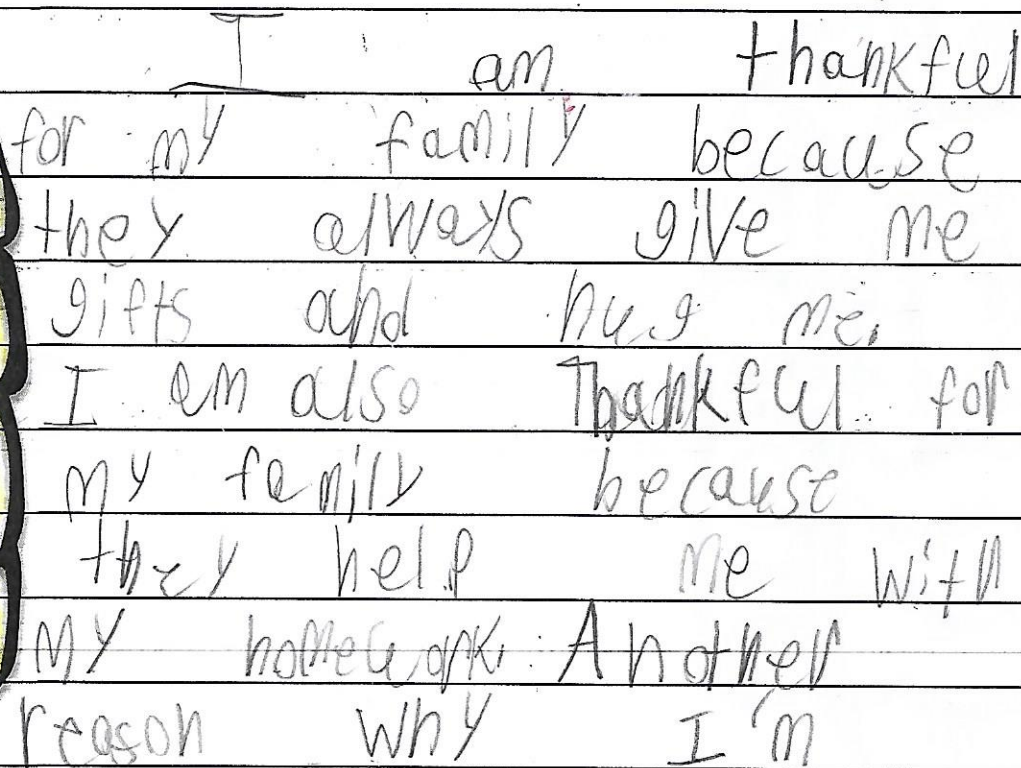 I am thankful
for my family because
they always give me
gifts and hug me.
I am also Thankful for
my family because
they help me with
my homework. Another
reason why I'm